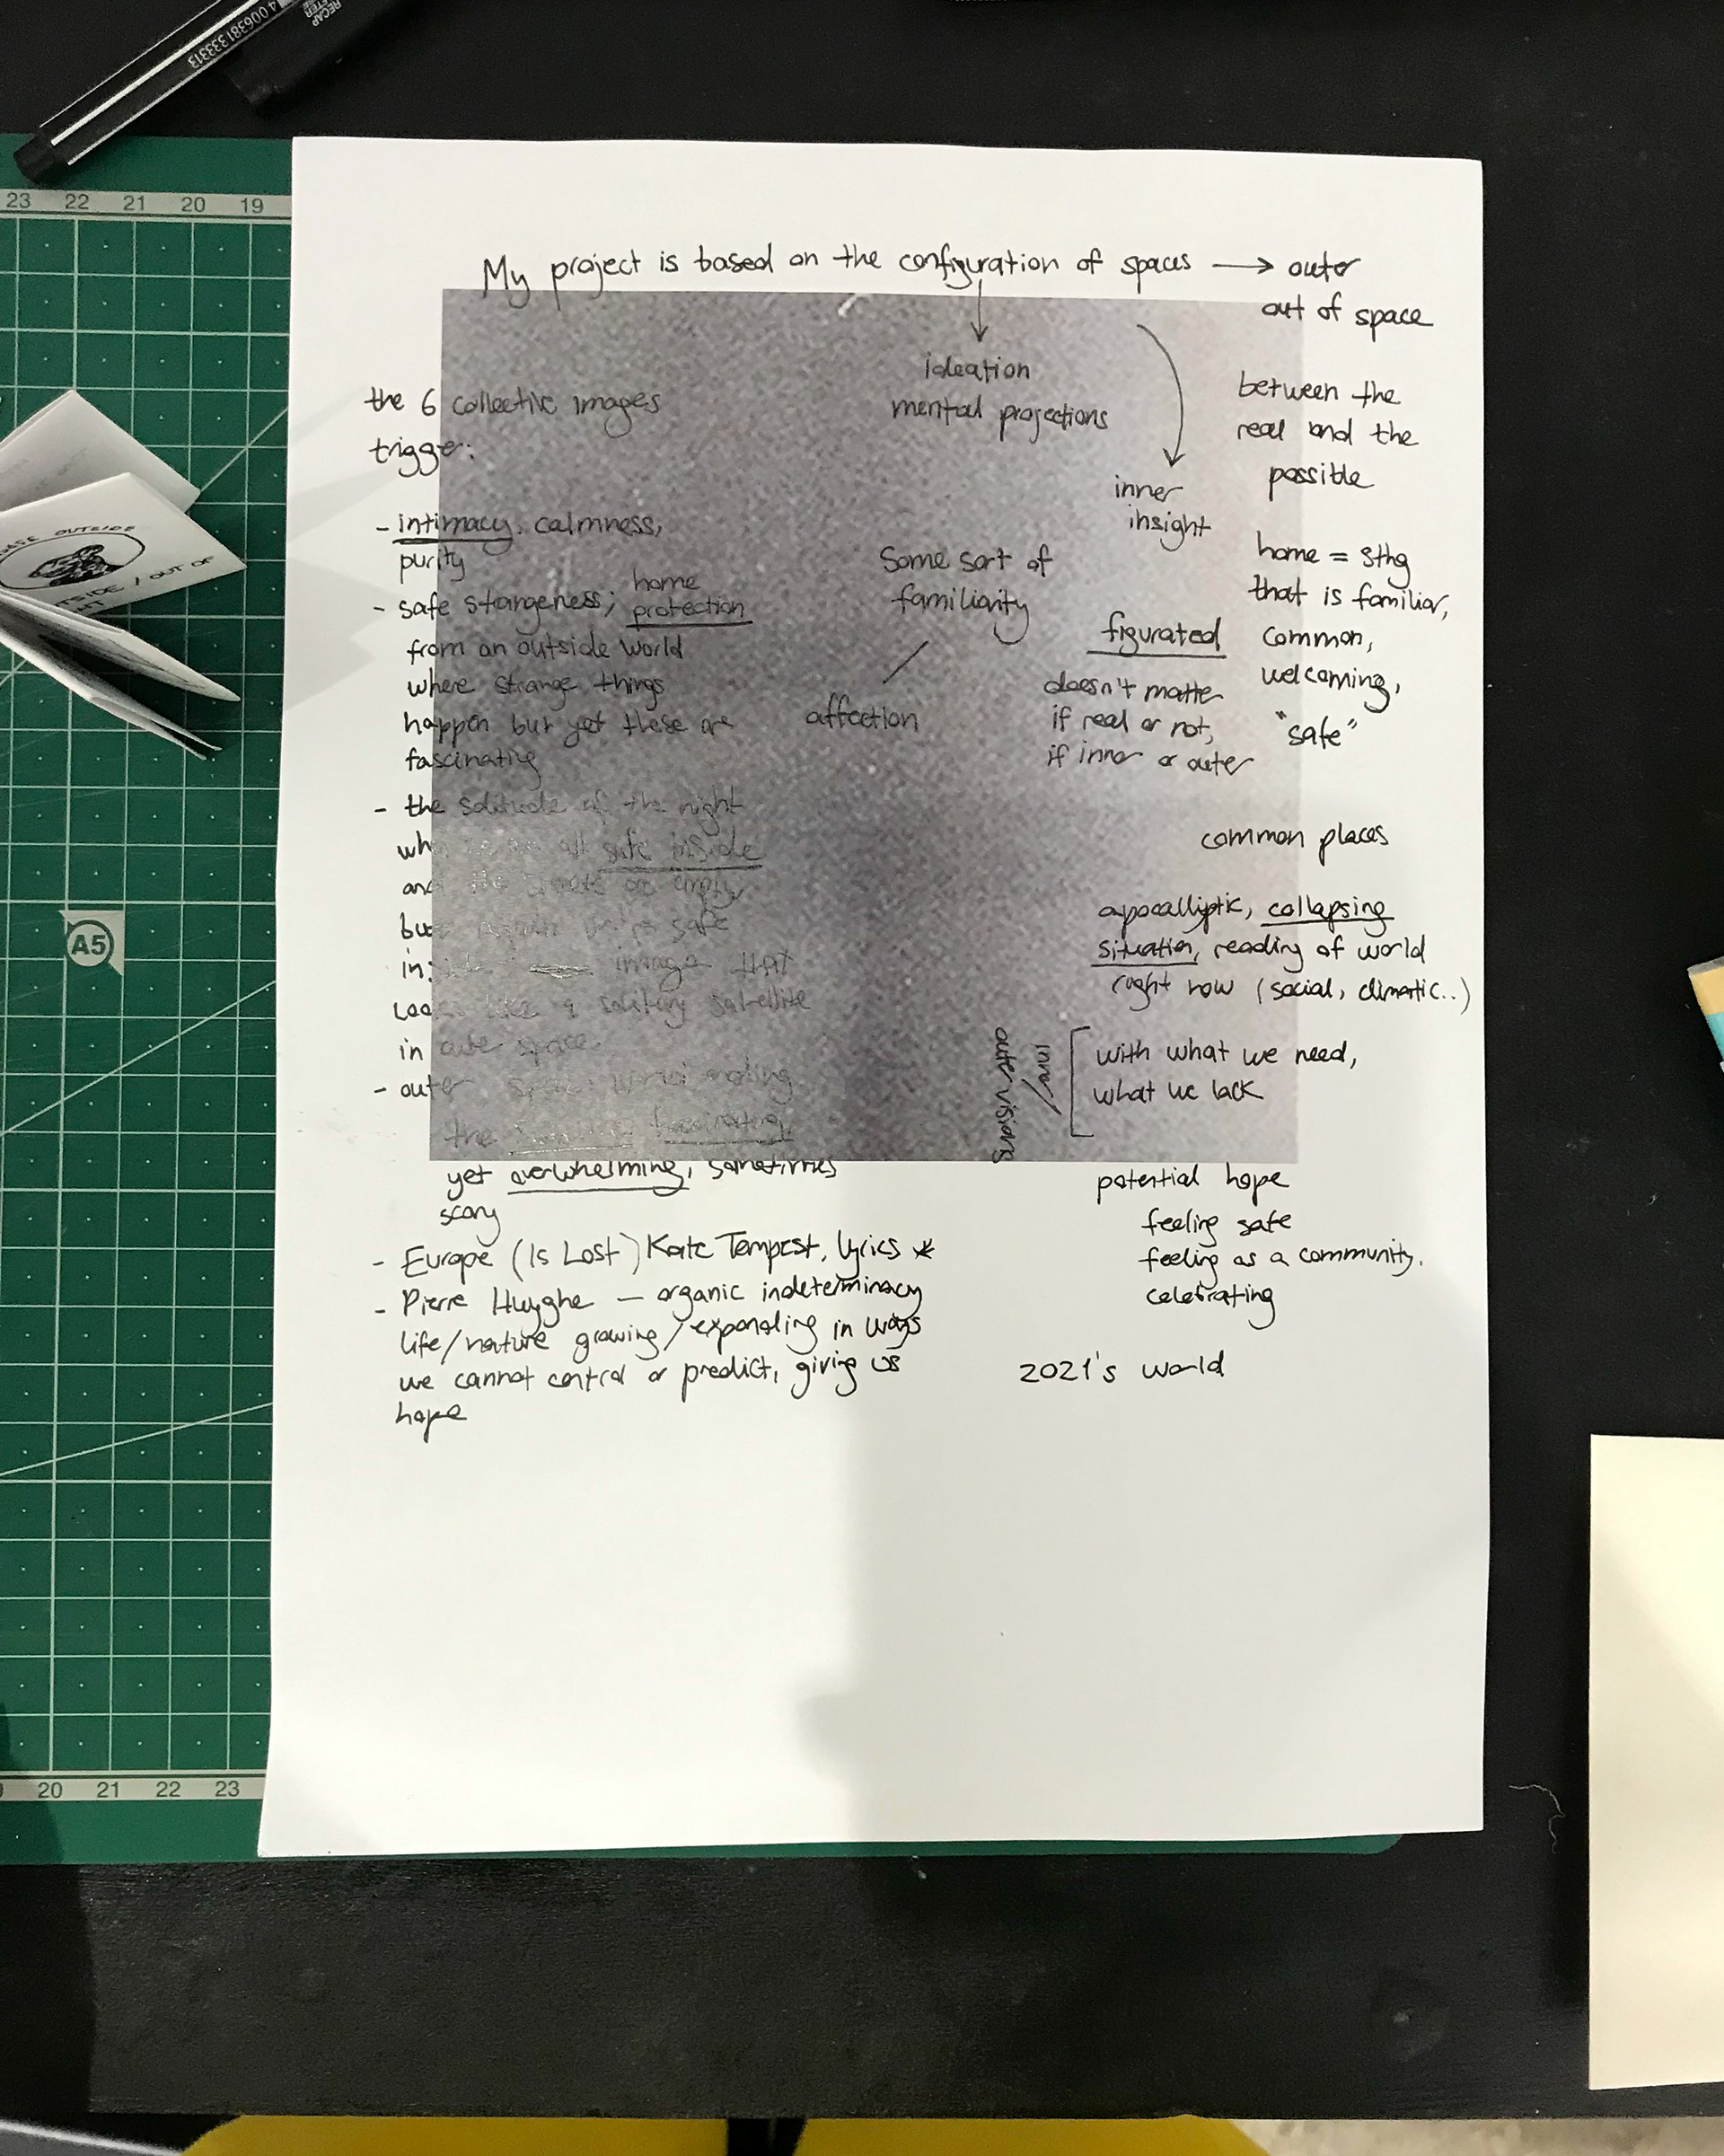 My project is based on the configuration of spaces → outer
out of space
ideation
mental projections
inner
insight
between the
real and the
possible
the 6 collective images
trigger:
- intimacy, calmness,
purity
- safe strangeness; home
protection
from an outside world
where strange things
happen but yet these are
fascinating
- the solitude of the night
safe inside
and the streets are empty
safe
image that
looks like a solitary satellite
in outer space
- outer space
the fascinating,
yet overwhelming, sometimes
scary
- Europe (Is Lost) Kate Tempest, lyrics *
- Pierre Huyghe — organic indeterminacy
life/nature growing/expanding in ways
we cannot control or predict, giving us
hope
Some sort of
familiarity
affection
figurated
doesn't matter
if real or not,
if inner or outer
home = sthg
that is familiar,
common,
welcoming,
"safe"
common places
apocalliptic, collapsing
situation, reading of world
right now (social, climatic..)
inner/
outer visions
with what we need,
what we lack
potential hope
feeling safe
feeling as a community.
celebrating
2021's world
23 22 21 20 19
A5
20 21 22 23
4 006381 333313
OUTSIDE
/ OUT OF